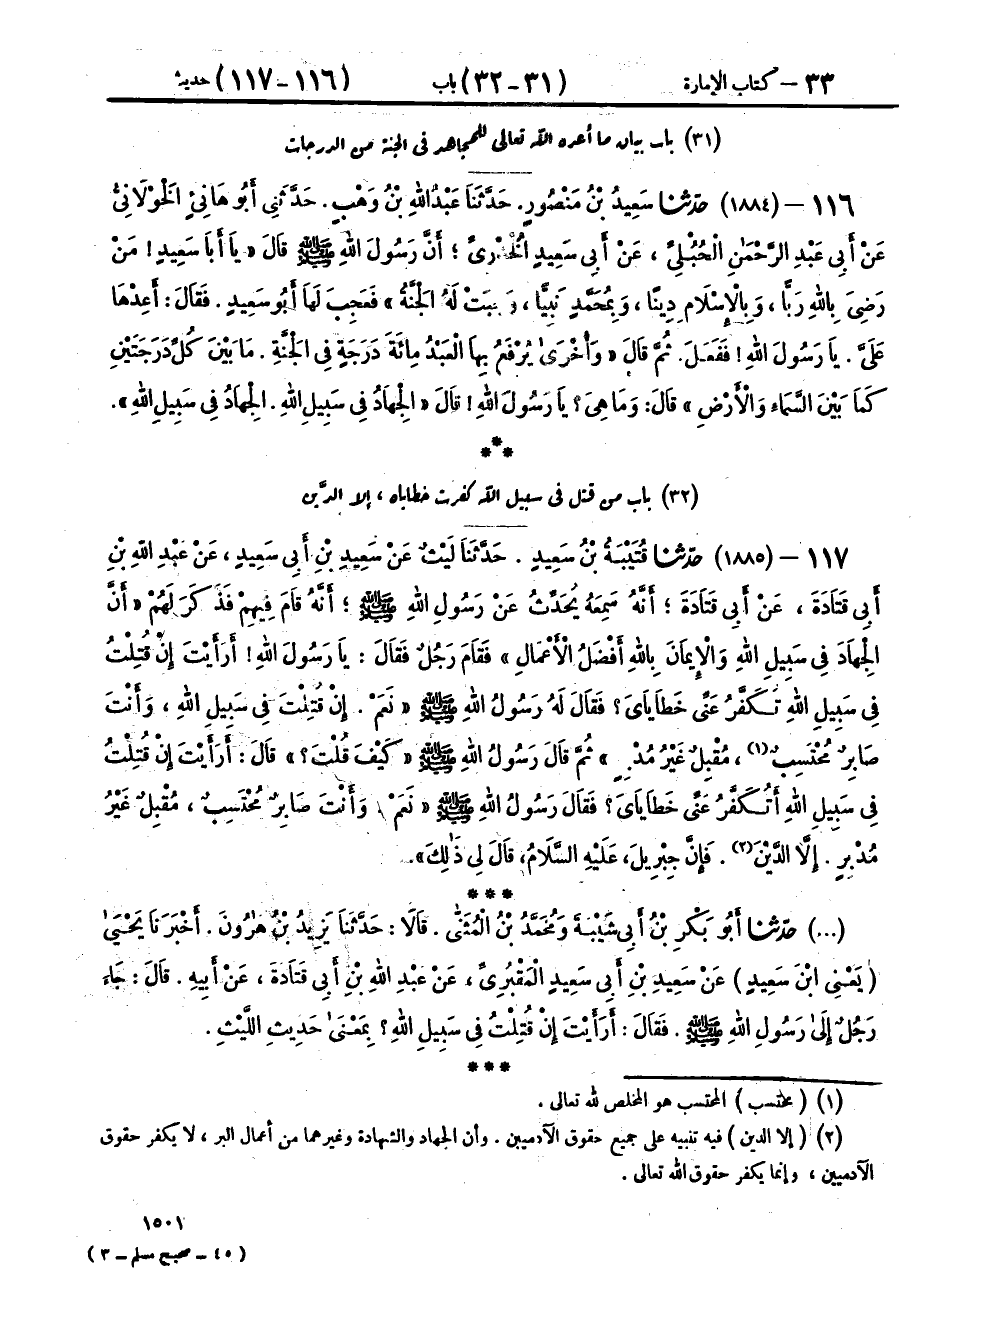 ٣٣ – كتاب الإمارة (٣١-٣٢) باب (١١٦-١١٧) حديث
(٣١) باب بيان ما أعده الله تعالى للمجاهد فى الجنة من الدرجات
١١٦ – (١٨٨٤) حَدَّثَنَا سَعِيدُ بْنُ مَنْصُورٍ. حَدَّثَنَا عَبْدُ اللهِ بْنُ وَهْبٍ. حَدَّثَنِى أَبُو هَانِئٍ الْخَوْلَانِىُّ
عَنْ أَبِى عَبْدِ الرَّحْمَٰنِ الْحُبُلِىِّ، عَنْ أَبِى سَعِيدٍ الْخُدْرِىِّ؛ أَنَّ رَسُولَ اللهِ ﷺ قَالَ « يَا أَبَا سَعِيدٍ! مَنْ
رَضِىَ بِاللهِ رَبًّا، وَبِالْإِسْلَامِ دِينًا، وَبِمُحَمَّدٍ نَبِيًّا، وَجَبَتْ لَهُ الْجَنَّةُ » فَعَجِبَ لَهَا أَبُو سَعِيدٍ. فَقَالَ: أَعِدْهَا
عَلَىَّ. يَا رَسُولَ اللهِ! فَفَعَلَ. ثُمَّ قَالَ « وَأُخْرَىٰ يُرْفَعُ بِهَا الْعَبْدُ مِائَةَ دَرَجَةٍ فِى الْجَنَّةِ. مَا بَيْنَ كُلِّ دَرَجَتَيْنِ
كَمَا بَيْنَ السَّمَاءِ وَالْأَرْضِ » قَالَ: وَمَا هِىَ؟ يَا رَسُولَ اللهِ! قَالَ « الْجِهَادُ فِى سَبِيلِ اللهِ. الْجِهَادُ فِى سَبِيلِ اللهِ ».
***
(٣٢) باب من قتل فى سبيل الله كفرت خطاياه، إلا الدين
١١٧ – (١٨٨٥) حَدَّثَنَا قُتَيْبَةُ بْنُ سَعِيدٍ. حَدَّثَنَا لَيْثٌ عَنْ سَعِيدِ بْنِ أَبِى سَعِيدٍ، عَنْ عَبْدِ اللهِ بْنِ
أَبِى قَتَادَةَ، عَنْ أَبِى قَتَادَةَ؛ أَنَّهُ سَمِعَهُ يُحَدِّثُ عَنْ رَسُولِ اللهِ ﷺ؛ أَنَّهُ قَامَ فِيهِمْ فَذَكَرَ لَهُمْ « أَنَّ
الْجِهَادَ فِى سَبِيلِ اللهِ وَالْإِيمَانَ بِاللهِ أَفْضَلُ الْأَعْمَالِ » فَقَامَ رَجُلٌ فَقَالَ: يَا رَسُولَ اللهِ! أَرَأَيْتَ إِنْ قُتِلْتُ
فِى سَبِيلِ اللهِ تُكَفَّرُ عَنِّى خَطَايَاىَ؟ فَقَالَ لَهُ رَسُولُ اللهِ ﷺ « نَعَمْ. إِنْ قُتِلْتَ فِى سَبِيلِ اللهِ، وَأَنْتَ
صَابِرٌ مُحْتَسِبٌ(١)، مُقْبِلٌ غَيْرُ مُدْبِرٍ » ثُمَّ قَالَ رَسُولُ اللهِ ﷺ « كَيْفَ قُلْتَ؟ » قَالَ: أَرَأَيْتَ إِنْ قُتِلْتُ
فِى سَبِيلِ اللهِ أَتُكَفَّرُ عَنِّى خَطَايَاىَ؟ فَقَالَ رَسُولُ اللهِ ﷺ « نَعَمْ. وَأَنْتَ صَابِرٌ مُحْتَسِبٌ، مُقْبِلٌ غَيْرُ
مُدْبِرٍ. إِلَّا الدَّيْنَ(٢). فَإِنَّ جِبْرِيلَ، عَلَيْهِ السَّلَامُ، قَالَ لِى ذَٰلِكَ ».
***
(...) حَدَّثَنَا أَبُو بَكْرِ بْنُ أَبِى شَيْبَةَ وَمُحَمَّدُ بْنُ الْمُثَنَّى. قَالَا: حَدَّثَنَا يَزِيدُ بْنُ هَٰرُونَ. أَخْبَرَنَا يَحْيَىٰ
(يَعْنِى ابْنَ سَعِيدٍ) عَنْ سَعِيدِ بْنِ أَبِى سَعِيدٍ الْمَقْبُرِىِّ، عَنْ عَبْدِ اللهِ بْنِ أَبِى قَتَادَةَ، عَنْ أَبِيهِ. قَالَ: جَاءَ
رَجُلٌ إِلَىٰ رَسُولِ اللهِ ﷺ. فَقَالَ: أَرَأَيْتَ إِنْ قُتِلْتُ فِى سَبِيلِ اللهِ؟ بِمَعْنَىٰ حَدِيثِ اللَّيْثِ.
***
(١) (محتسب) المحتسب هو المخلص لله تعالى.
(٢) (إلا الدين) فيه تنبيه على جميع حقوق الآدميين. وأن الجهاد والشهادة وغيرهما من أعمال البر، لا يكفر حقوق
الآدميين، وإنما يكفر حقوق الله تعالى.
١٥٠١
(٤٥ – صحيح مسلم – ٣)